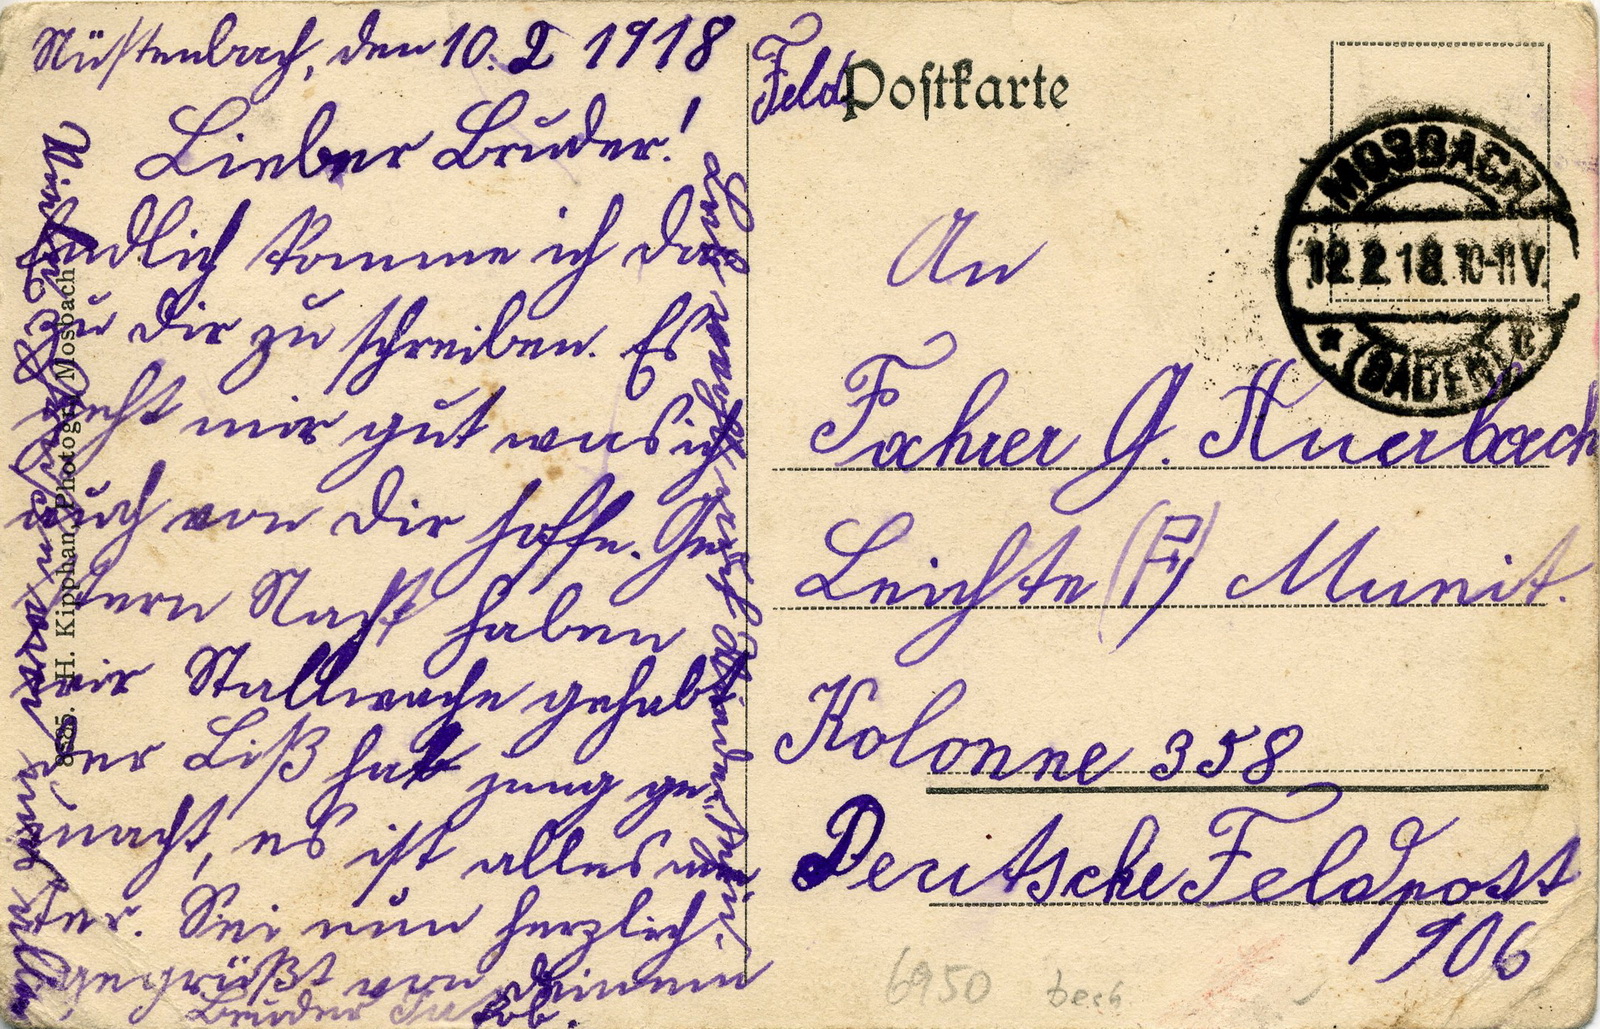 Nüstenbach, den 10. 2 1918
Lieber Bruder!
Endlich komme ich da
zu dir zu schreiben. Es
geht mir gut was ich
auch von dir hoffe. Ges
tern Nacht haben
wir Stallwache gehabt
der Liß hat jung ge
macht, es ist alles mun
ter. Sei nun herzlich
gegrüßt von deinem
Bruder Jakob.
Feld Postkarte
MOSBACH
12.2.18.10-11V.
(BADEN)
An
Fahrer G. Auerbach
Leichte (F) Munit.
Kolonne 358
Deutsche Feldpost
906
6950
8685. H. Kipphan, Photogr., Mosbach